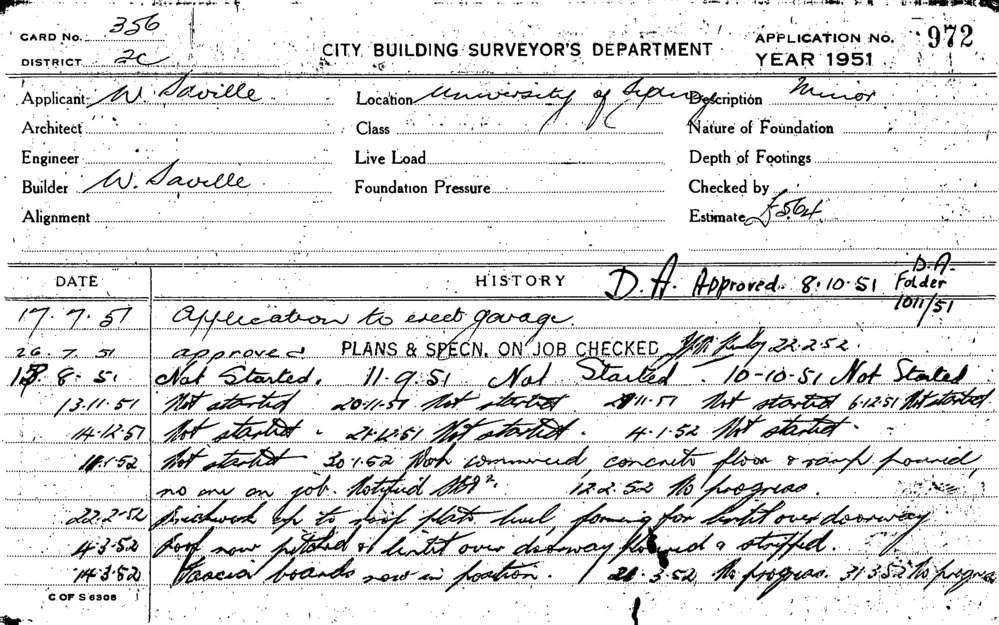 CARD No. 356
DISTRICT 2C
CITY BUILDING SURVEYOR'S DEPARTMENT
APPLICATION No. 972
YEAR 1951
Applicant W. Saville Location University of Sydney Description Minor
Architect Class Nature of Foundation
Engineer Live Load Depth of Footings
Builder W. Saville Foundation Pressure Checked by
Alignment Estimate £564
DATE HISTORY D.A. Approved. 8.10.51 D.A. Folder 1011/51
17.7.51 Application to erect garage.
26.7.51 approved PLANS & SPECN. ON JOB CHECKED 22.2.52.
8.51 Not Started. 11.9.51 Not Started. 10-10-51 Not Started
13.11.51 Not started 20.11.51 Not started 11.51 Not started 6.12.51 Not started
14.12.51 Not started. 21.12.51 Not started. 4.1.52 Not started.
1.52 Not started 30.1.52 Work commenced, concrete floor & ramp poured,
no one on job. Notified 12.2.52 No progress.
22.2.52 Brickwork up to roof plate level, forming for lintil over doorway
4.3.52 Roof now pitched & lintil over doorway poured & stripped.
14.3.52 Fascia boards now in position. 3.52 No progress. 31.3.52 No progress
C OF S 6306